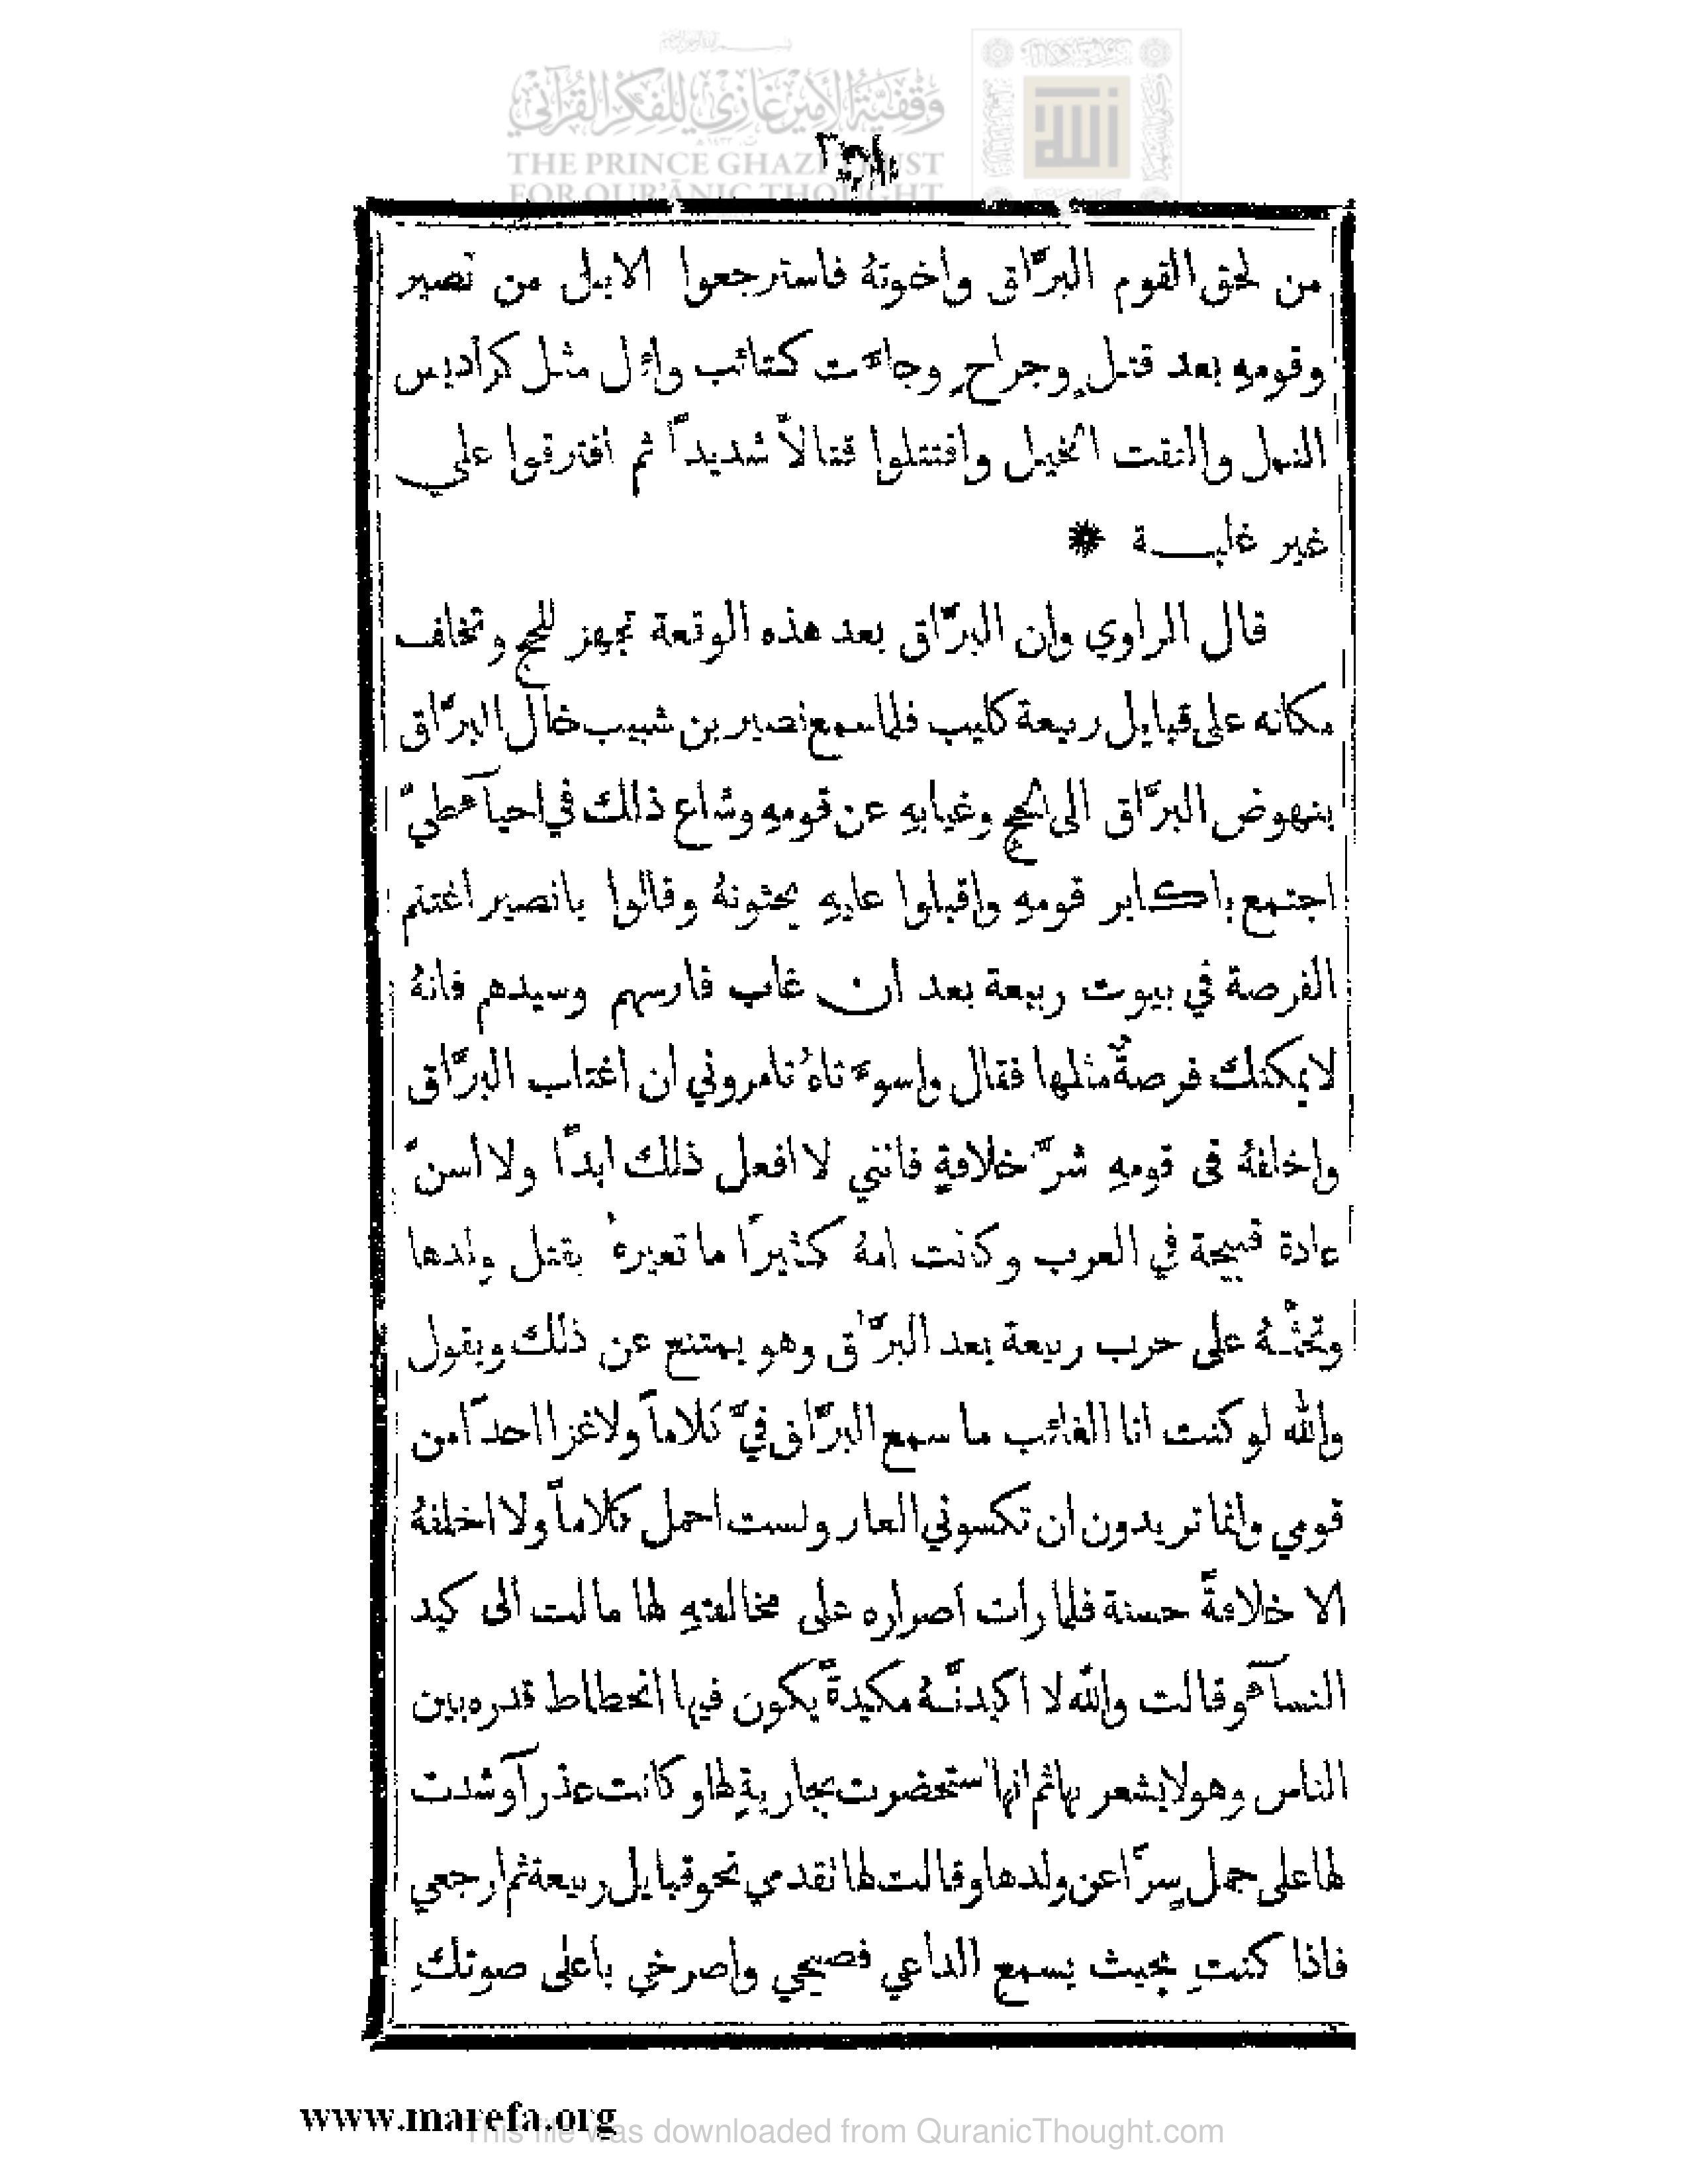 وقفية الأمير غازي للفكر القرآني
THE PRINCE GHAZI TRUST
FOR QUR'ĀNIC THOUGHT
من لحق القوم البرَّاق واخوتهُ فاسترجعوا الابل من نصير
وقومهِ بعد قتلٍ وجراحٍ وجاءت كتائب وائل مثل كراديس
النمل والتقت الخيل واقتتلوا قتالاً شديداً ثم افترقوا على
غير غلبـــة *
قال الراوي وان البرَّاق بعد هذه الوقعة تجهز للحج وتخلف
مكانه على قبايل ربيعة كليب فلما سمع نصير بن شبيب خال البرَّاق
بنهوض البرَّاق الى الحج وغيابهِ عن قومهِ وشاع ذلك في احيآء طيّ
اجتمع باكابر قومهِ واقبلوا عليهِ يحثونهُ وقالوا يا نصير اغتنم
الفرصة في بيوت ربيعة بعد ان غاب فارسهم وسيدهم فانهُ
لا يمكنك فرصةٌ مثلها فقال واسوءتاهُ تامروني ان اغتاب البرَّاق
واخلفهُ في قومهِ شرَّ خلافةٍ فانني لا افعل ذلك ابداً ولا اسنّ
عادة قبيحة في العرب وكانت امهُ كثيراً ما تعيرهُ بقتل ولدها
وتحثـهُ على حرب ربيعة بعد البرَّاق وهو يمتنع عن ذلك ويقول
والله لو كنت انا الغائب ما سمع البرَّاق فيَّ كلاماً ولا غزا احداً من
قومي وانما تريدون ان تكسوني العار ولست احمل كلاماً ولا اخلفهُ
الا خلافةً حسنة فلما رات اصراره على مخالفتهِ لها مالت الى كيد
النسآء وقالت والله لا اكيدنَّـهُ مكيدةً يكون فيها انحطاط قدره بين
الناس وهو لا يشعر بها ثم انها استحضرت بجاريةٍ لها وكانت عذرآ وشدت
لها على جمل سِرّاً عن ولدها وقالت لها تقدمي نحو قبايل ربيعة ثم ارجعي
فاذا كنتِ بحيث يسمع الداعي فصيحي واصرخي باعلى صوتكِ
www.marefa.org
This file was downloaded from QuranicThought.com